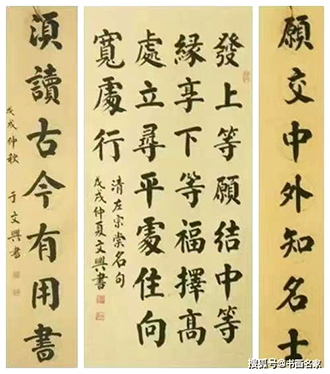 願交中外知名士
發上等願結中等
緣享下等福擇高
處立尋平處住向
寬處行
清左宗棠名句
戊戌仲夏文興書
湏讀古今有用書
戊戌仲秋 于文興書
搜狐号@书画名家